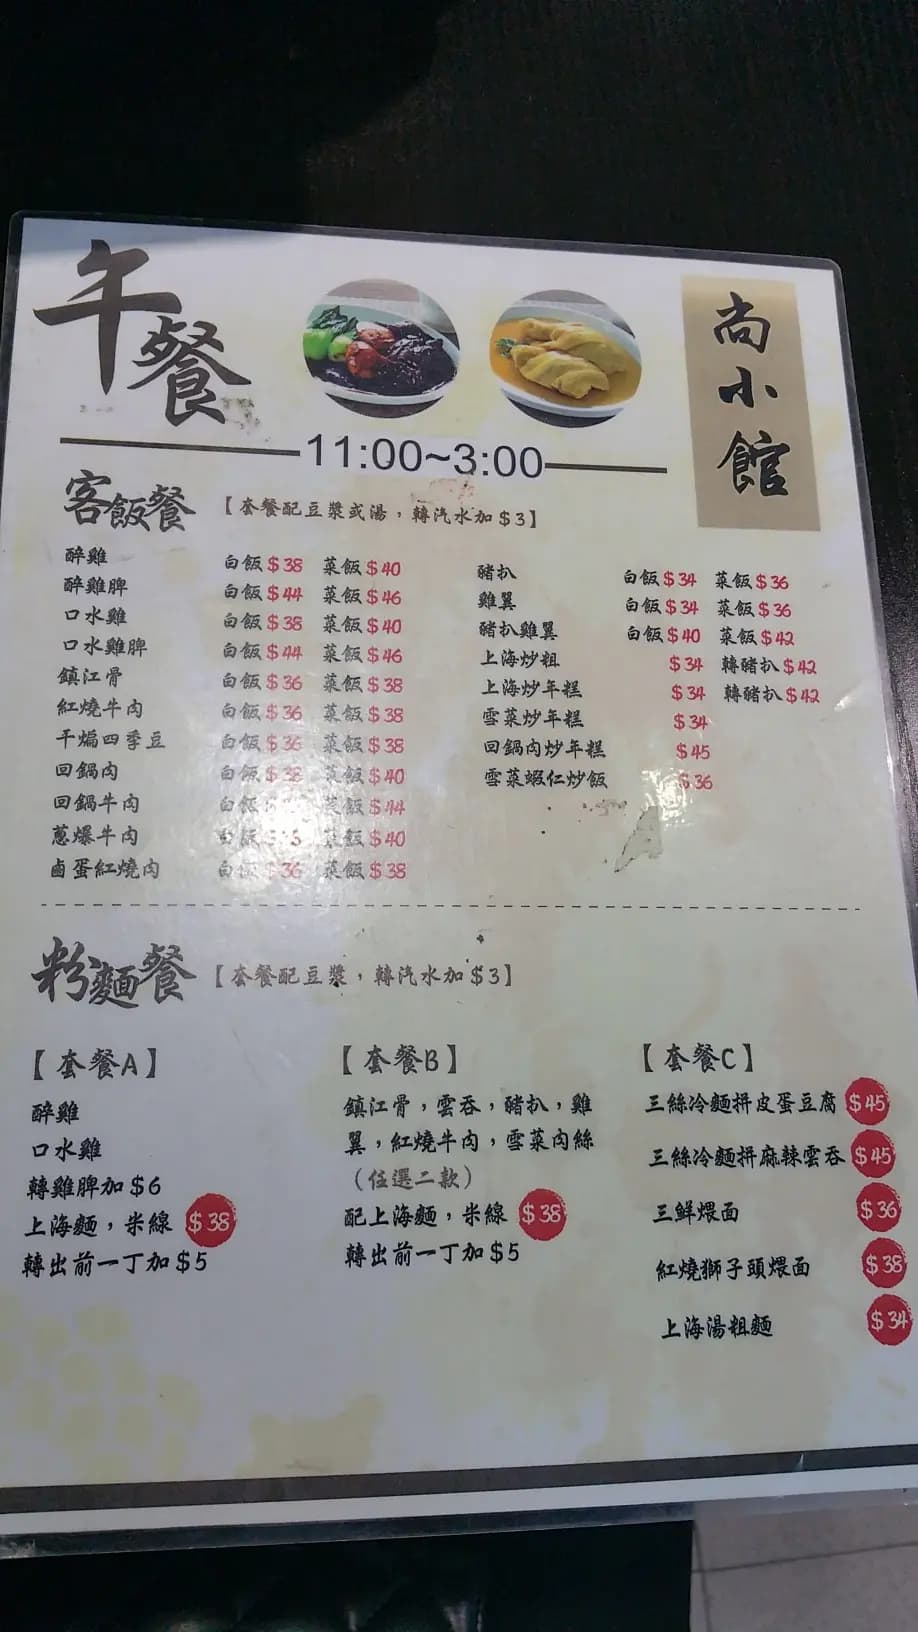 午餐
尚小館
11:00~3:00
客飯餐
【套餐配豆漿或湯，轉汽水加$3】
醉雞 白飯$38 菜飯$40
醉雞脾 白飯$44 菜飯$46
口水雞 白飯$38 菜飯$40
口水雞脾 白飯$44 菜飯$46
鎮江骨 白飯$36 菜飯$38
紅燒牛肉 白飯$36 菜飯$38
干煸四季豆 白飯$36 菜飯$38
回鍋肉 白飯$38 菜飯$40
回鍋牛肉 白飯 菜飯$44
蔥爆牛肉 白飯 菜飯$40
鹵蛋紅燒肉 白飯$36 菜飯$38
豬扒 白飯$34 菜飯$36
雞翼 白飯$34 菜飯$36
豬扒雞翼 白飯$40 菜飯$42
上海炒粗 $34 轉豬扒$42
上海炒年糕 $34 轉豬扒$42
雪菜炒年糕 $34
回鍋肉炒年糕 $45
雪菜蝦仁炒飯 $36
粉麵餐
【套餐配豆漿，轉汽水加$3】
【套餐A】
醉雞
口水雞
轉雞脾加$6
上海麵，米線 $38
轉出前一丁加$5
【套餐B】
鎮江骨，雲吞，豬扒，雞
翼，紅燒牛肉，雪菜肉絲
（任選二款）
配上海麵，米線 $38
轉出前一丁加$5
【套餐C】
三絲冷麵拼皮蛋豆腐 $45
三絲冷麵拼麻辣雲吞 $45
三鮮煨面 $36
紅燒獅子頭煨面 $38
上海湯粗麵 $34